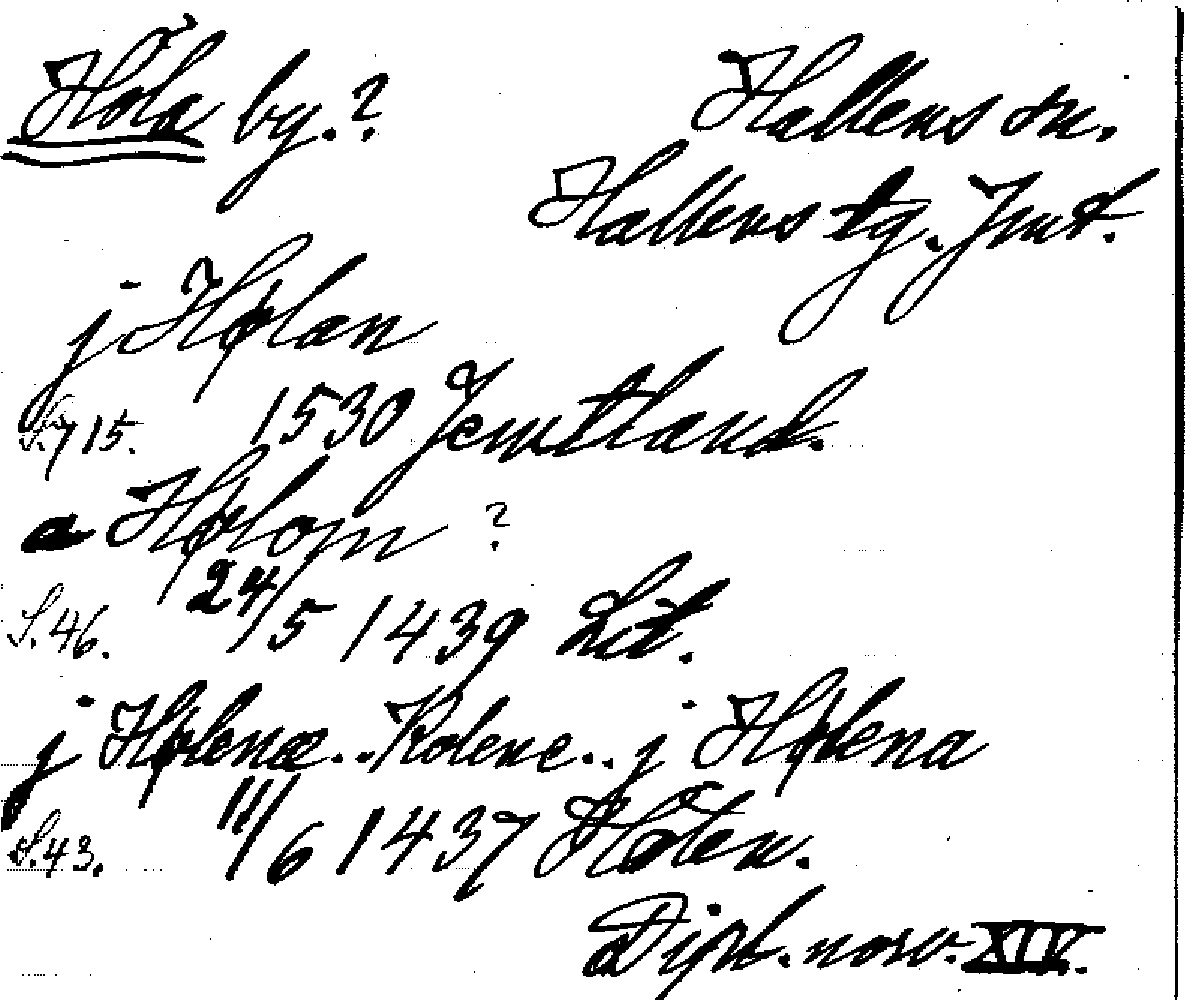 Höla by.? Hallens sn.
Hallens tg. Jmt.
j Hølan
S. 715. 1530 Jemtland.
a Hølom ?
S. 46. 24/5 1439 Lit.
j Hølenæ.. Kolene.. j Hølena
S. 43. 11/6 1437
Dipl. norv. XIV.